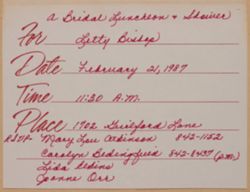 A Bridal Luncheon & Shower
For Letty Bishop
Date February 21, 1987
Time 11:30 A.M.
Place 1902 Guilford Lane
RSVP Mary Lou Adkinson 842-1152
Carolyn Bedingfield 842-8437 (p.m.)
Lida
Joanne Orr